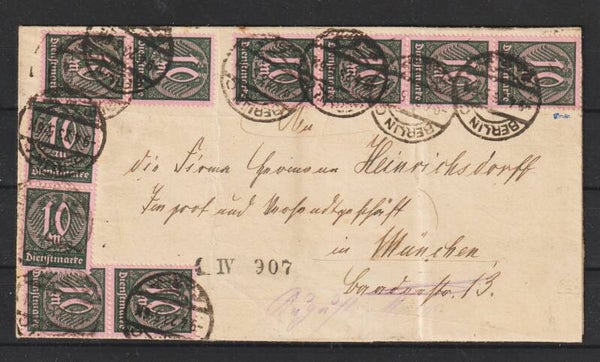 10 M Dienstmarke
10 M Dienstmarke
10 M Dienstmarke
10 M Dienstmarke
10 M Dienstmarke
10 M Dienstmarke
BERLIN
BERLIN C
BERLIN C
10 M Dienstmarke
10 M Dienstmarke
10 M Dienstmarke
10 M Dienstmarke
An
die Firma Hermann Heinrichsdorff
Import und Versandtgeschäft
in München
IV 907
13.